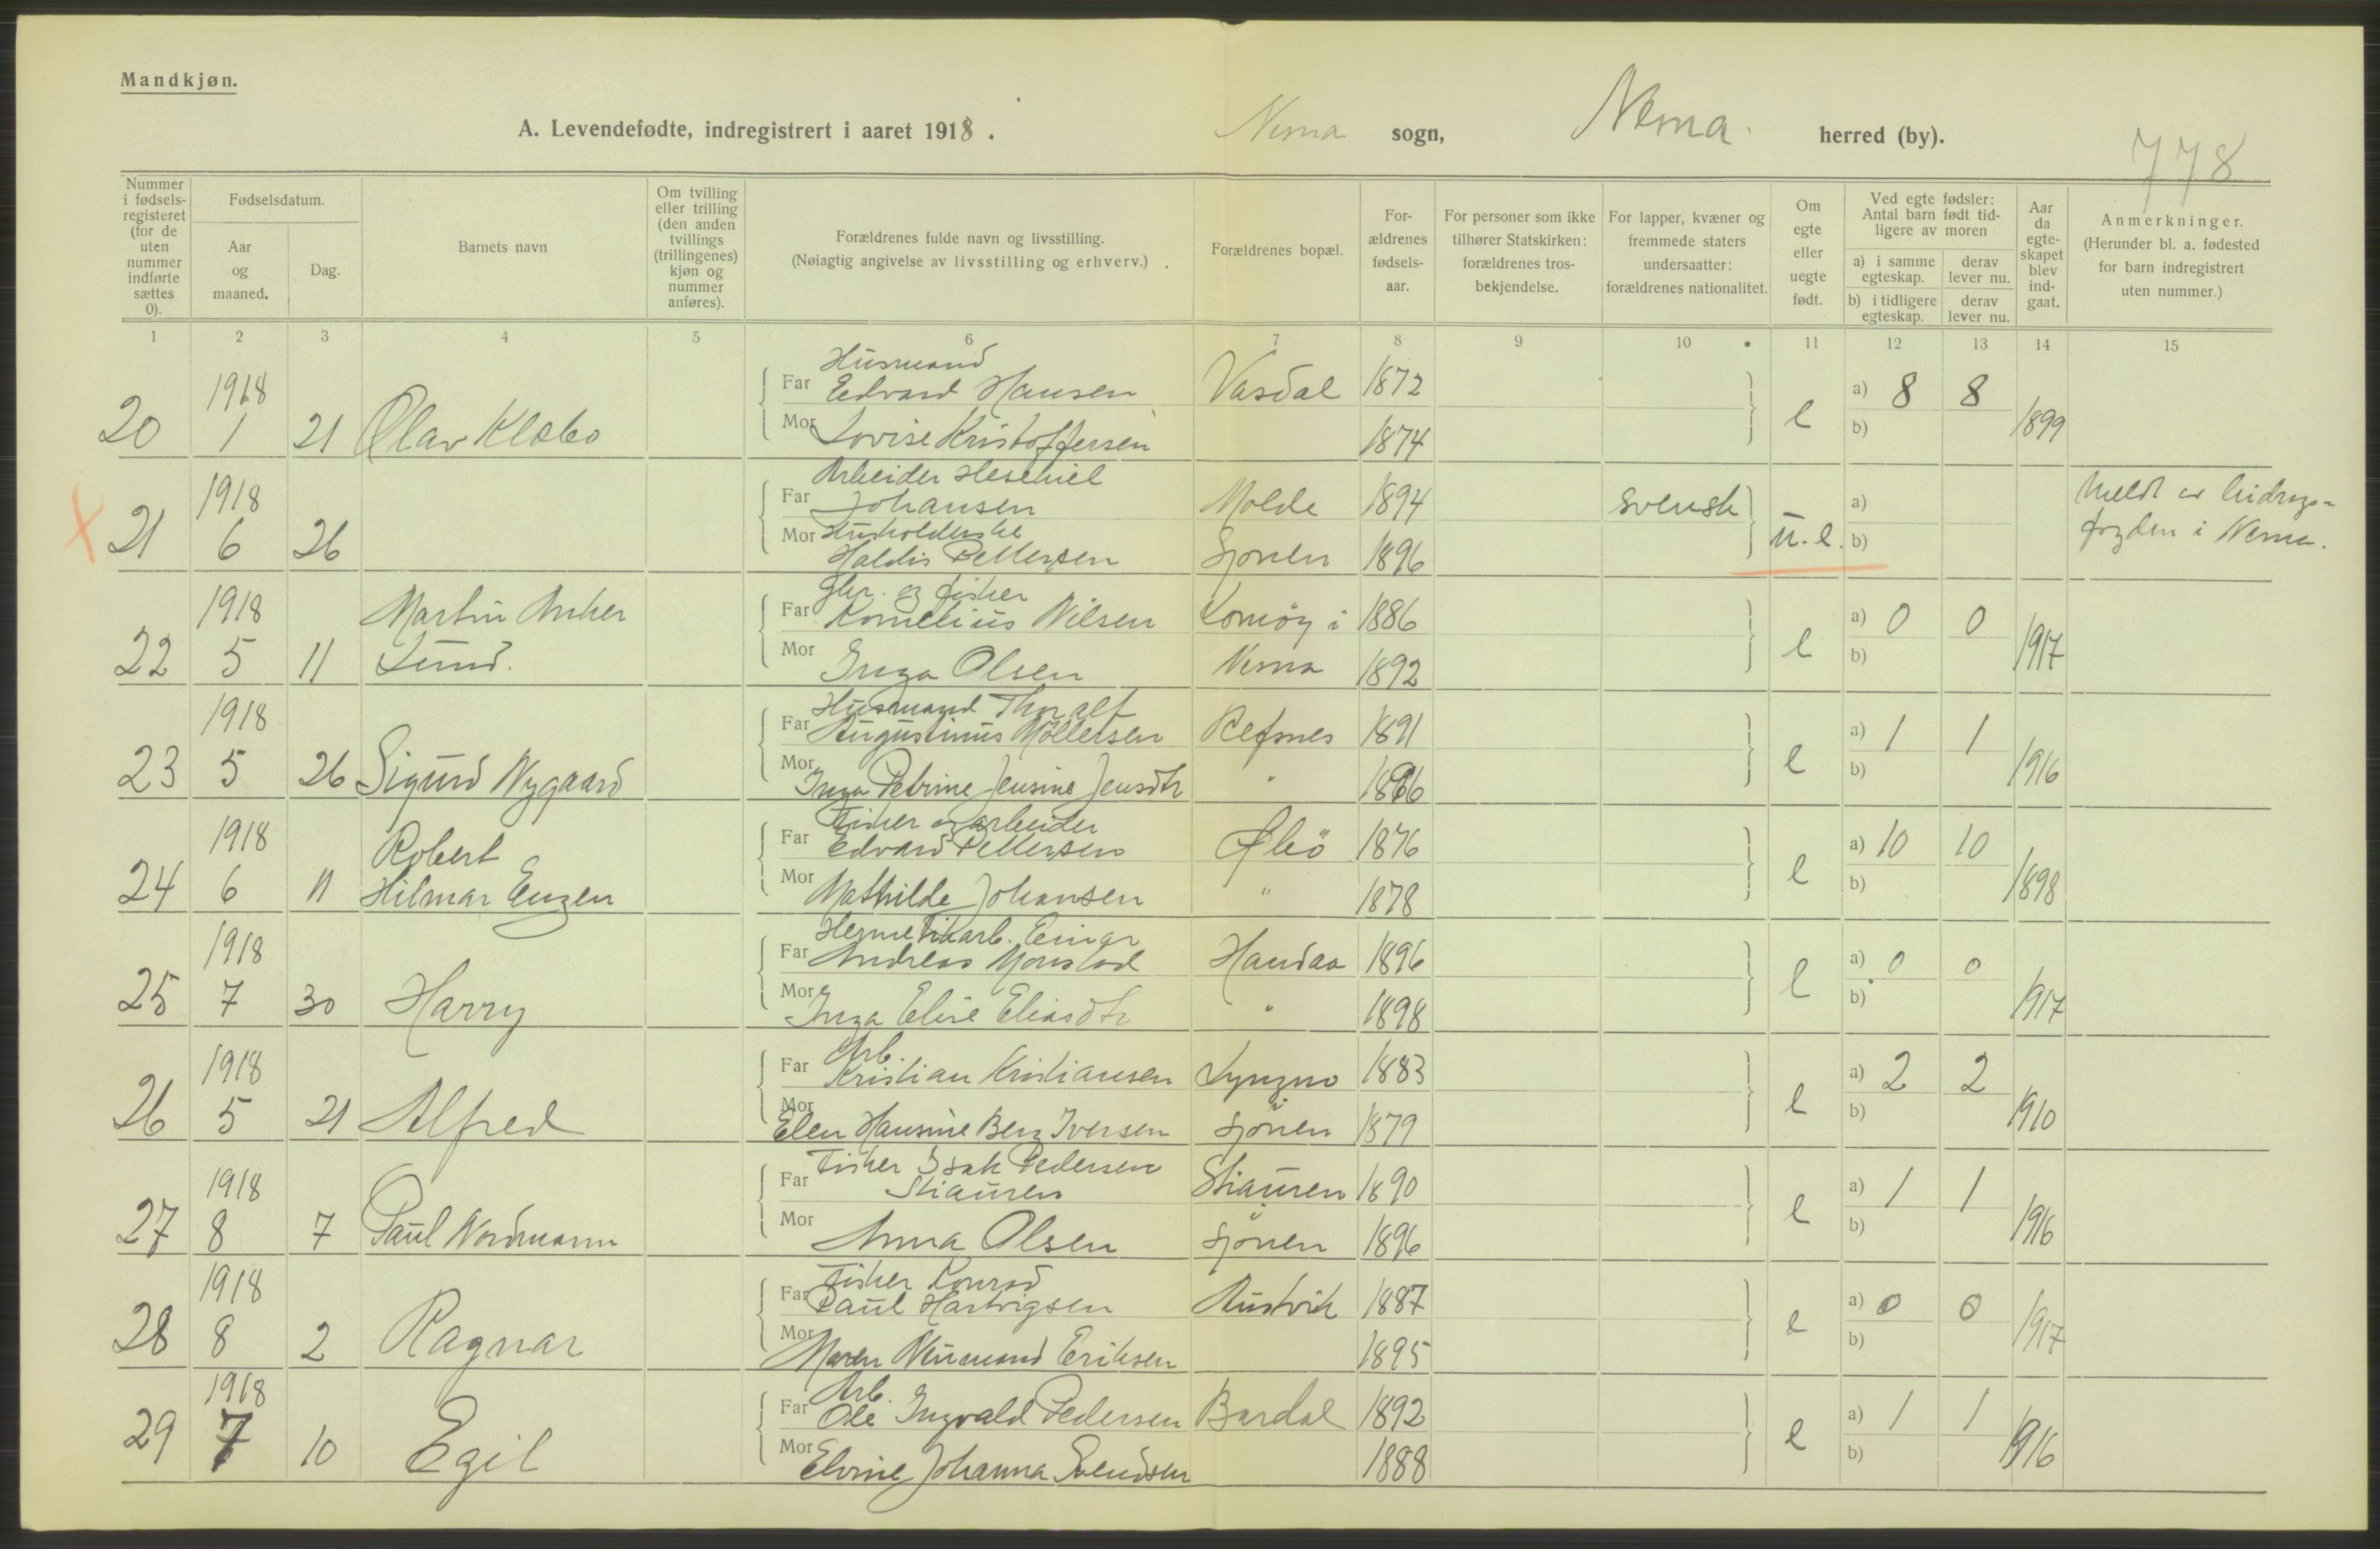 Mandkjøn.
A. Levendefødte, indregistrert i aaret 1918. Nesna sogn, Nesna. herred (by).
778
Nummer i fødsels-registeret (for de uten nummer indførte sættes 0).
Fødselsdatum.
Aar og maaned.
Dag.
Barnets navn
Om tvilling eller trilling (den anden tvillings (trillingenes) kjøn og nummer anføres).
Forældrenes fulde navn og livsstilling.
(Nøiagtig angivelse av livsstilling og erhverv.)
Forældrenes bopæl.
For-ældrenes fødsels-aar.
For personer som ikke tilhører Statskirken: forældrenes tros-bekjendelse.
For lapper, kvæner og fremmede staters undersaatter: forældrenes nationalitet.
Om egte eller uegte født.
Ved egte fødsler: Antal barn født tid-ligere av moren
a) i samme egteskap.
derav lever nu.
b) i tidligere egteskap.
derav lever nu.
Aar da egte-skapet blev ind-gaat.
Anmerkninger.
(Herunder bl. a. fødested for barn indregistrert uten nummer.)
1 2 3 4 5 6 7 8 9 10 11 12 13 14 15
Husmand
1918 Far Edvard Hansen Vasdal 1872 a) 8 8
20 1 21 Olav Klæbo Mor Lovise Kristoffersen 1874 e b) 1899
Arbeider Hesekiel
1918 Far Johansen Molde 1894 svensk a) Meldt er bidrags=
Mor Husholderske
21 6 26 Haldis Pettersen Sjonen 1896 u.e. b) fogden i Nesna.
Gbr. og fisker
1918 Martin Anker Far Kornelius Nilsen Tomöy i 1886 a) 0 0
22 5 11 Lund. Mor Inga Olsen Nesna 1892 e b) 1917
Husmand Thoralf
1918 Far Augustinus Möllersen Refsnes 1891 a) 1 1
23 5 26 Sigurd Nygaard Mor Inga Petrine Jensine Jensdtr " 1896 e b) 1916
Fisker og arbeider
1918 Robert Far Edvard Pettersen 1876 a) 10 10
24 6 11 Hilmar Eugen Mor Mathilde Johansen " 1878 e b) 1898
Hermetikarb. Einar
1918 Far Andreas Handaa 1896 a) 0 0
25 7 30 Harry Mor Inga Elise Eliasdtr " 1898 e b) 1917
Arb.
1918 Far Kristian Kristiansen 1883 a) 2 2
26 5 21 Alfred Mor Elen Hansine Berg Iversen Sjonen 1879 e b) 1910
Fisker Isak Pedersen
1918 Far Stiauren Stiauren 1890 a) 1 1
27 8 7 Paul Nordmann Mor Anna Olsen Sjonen 1896 e b) 1916
Fisker Konrad
1918 Far Paul Hartvigsen Rustvik 1887 a) 0 0
28 8 2 Ragnar Mor Maren Neumand Eriksen 1895 e b) 1917
Arb.
1918 Far Ole Ingvald Pedersen Bardal 1892 a) 1 1
29 7 10 Egil Mor Elvine Johanna Svendsen 1888 e b) 1916